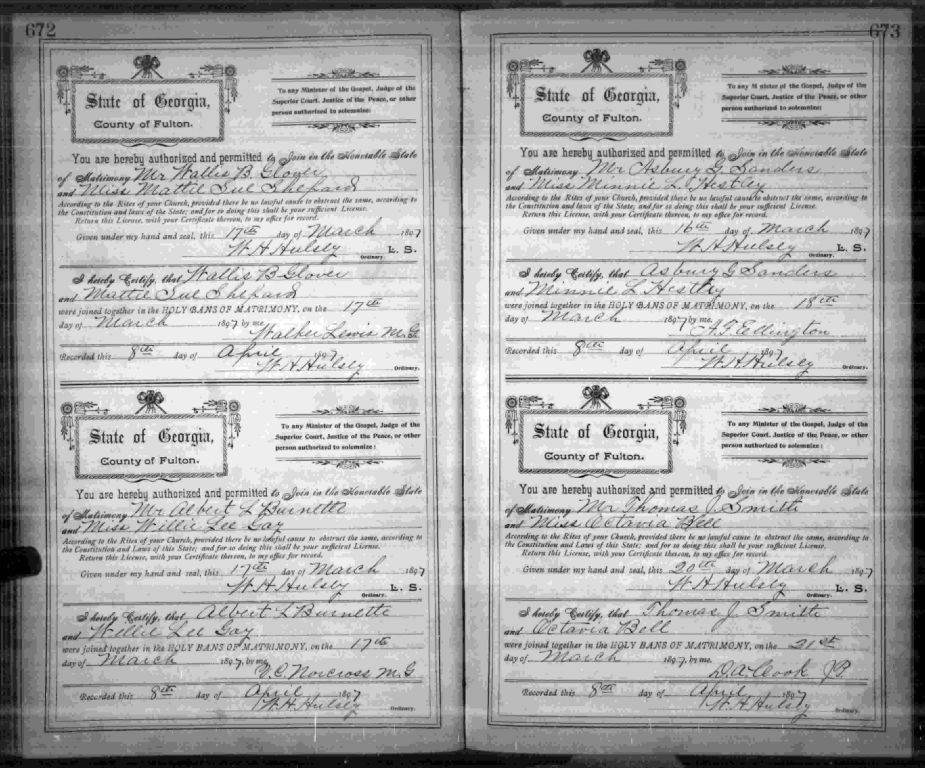 672
State of Georgia,
County of Fulton.
To any Minister of the Gospel, Judge of the
Superior Court, Justice of the Peace, or other
person authorized to solemnize:
You are hereby authorized and permitted to Join in the Honorable State
of Matrimony Mr Wallis B Glover
and Miss Mattie Sue Shepard
According to the Rites of your Church, provided there be no lawful cause to obstruct the same, according to
the Constitution and laws of the State; and for so doing this shall be your sufficient License.
Return this License, with your Certificate thereon, to my office for record.
Given under my hand and seal, this 17th day of March 1897
W. H. Hulsey L. S.
Ordinary.
I hereby Certify, that Wallis B Glover
and Mattie Sue Shepard
were joined together in the HOLY BANS OF MATRIMONY, on the 17th
day of March 1897 by me,
Walker Lewis M.G.
Recorded this 8th day of April 1897
W. H. Hulsey
Ordinary.
State of Georgia,
County of Fulton.
To any Minister of the Gospel, Judge of the
Superior Court, Justice of the Peace, or other
person authorized to solemnize:
You are hereby authorized and permitted to Join in the Honorable State
of Matrimony Mr Albert L Burnette
and Miss Willie Lee Gay
According to the Rites of your Church, provided there be no lawful cause to obstruct the same, according to
the Constitution and Laws of this State; and for so doing this shall be your sufficient License.
Return this License, with your Certificate thereon, to my office for record.
Given under my hand and seal, this 17th day of March 1897
W. H. Hulsey L. S.
Ordinary.
I hereby Certify, that Albert L Burnette
and Willie Lee Gay
were joined together in the HOLY BANS OF MATRIMONY, on the 17th
day of March 1897, by me,
V. C. Norcross M. G
Recorded this 8th day of April 1897
W. H. Hulsey
Ordinary.
673
State of Georgia,
County of Fulton.
To any Minister of the Gospel, Judge of the
Superior Court, Justice of the Peace, or other
person authorized to solemnize:
You are hereby authorized and permitted to Join in the Honorable State
of Matrimony Mr Asbury G. Sanders
and Miss Minnie L. Hestley
According to the Rites of your Church, provided there be no lawful cause to obstruct the same, according to
the Constitution and laws of the State; and for so doing this shall be your sufficient License.
Return this License, with your Certificate thereon, to my office for record.
Given under my hand and seal, this 16th day of March 1897
W. H. Hulsey L. S.
Ordinary.
I hereby Certify, that Asbury G Sanders
and Minnie L Hestley
were joined together in the HOLY BANS OF MATRIMONY, on the 18th
day of March 1897 by me,
Ellington
Recorded this 8th day of April 1897
W. H. Hulsey
Ordinary.
State of Georgia,
County of Fulton.
To any Minister of the Gospel, Judge of the
Superior Court, Justice of the Peace, or other
person authorized to solemnize:
You are hereby authorized and permitted to Join in the Honorable State
of Matrimony Mr Thomas J. Smith
and Miss Octavia Bell
According to the Rites of your Church, provided there be no lawful cause to obstruct the same, according to
the Constitution and Laws of this State; and for so doing this shall be your sufficient License.
Return this License, with your Certificate thereon, to my office for record.
Given under my hand and seal, this 20th day of March 1897
W. H. Hulsey L. S.
Ordinary.
I hereby Certify, that Thomas J. Smith
and Octavia Bell
were joined together in the HOLY BANS OF MATRIMONY, on the 21st
day of March 1897, by me,
D. A. Cook JP.
Recorded this 8th day of April 1897
W. H. Hulsey
Ordinary.